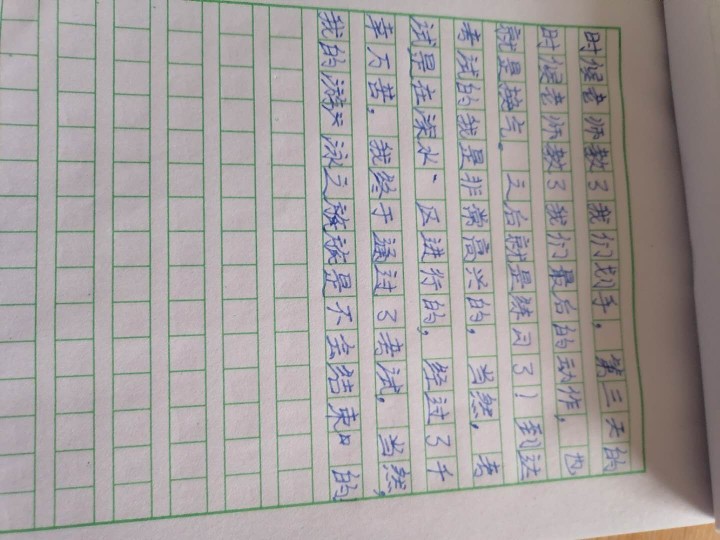 时候老师教了我们划手。第三天的
时候老师教了我们最后的动作,也
就是换气。之后就是练习了!到达
考试的我是非常高兴的,当然,考
试是在深水区进行的,经过了千
辛万苦,我终于通过了考试。当然,
我的游泳之旅是不会结束的